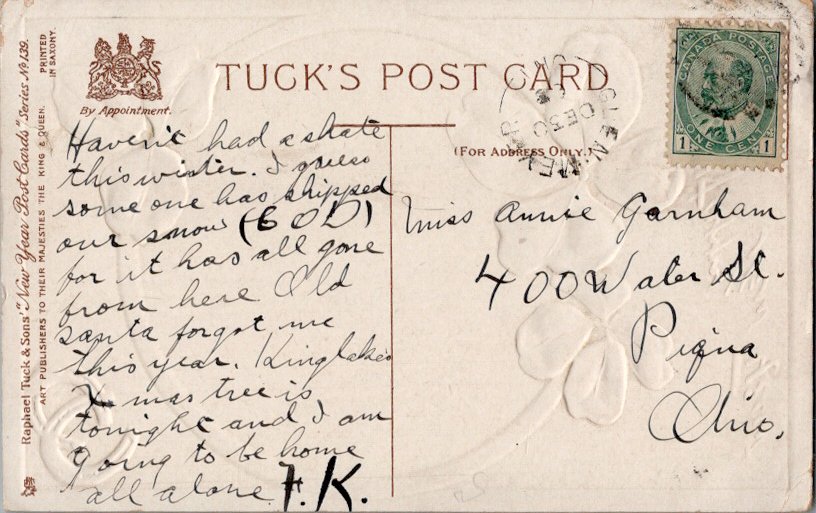 TUCK'S POST CARD
By Appointment.
(FOR ADDRESS ONLY.)
Raphael Tuck & Sons' "New Year Post Cards" Series No 139.
ART PUBLISHERS TO THEIR MAJESTIES THE KING & QUEEN.
PRINTED
IN SAXONY.
CANADA POSTAGE
1 ONE CENT 1
GLEN MEYER
DE 30
Haven't had a skate
this winter. I guess
some one has shipped
our snow (COD)
for it has all gone
from here Old
Santa forgot me
this year. Kinglakes
X mas tree is
tonight and I am
going to be home
all alone. F.K.
Miss Annie Garnham
400 Water St.
Piqua
Ohio.